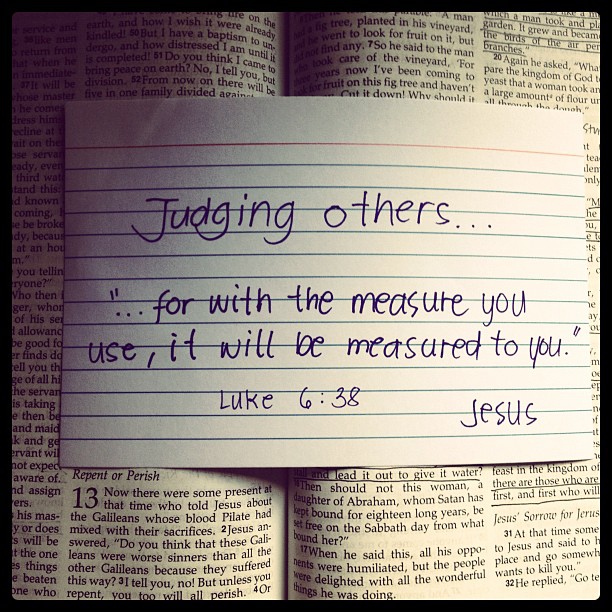 service and
return from
hat when he
immediate-
37It will be
whose master
earth, and how I wish it were already
kindled! 50But I have a baptism to un-
dergo, and how distressed I am until it
is completed! 51Do you think I came to
bring peace on earth? No, I tell you, but
division. 52From now on there will be
five in one family divided against
"A man
had a fig tree, planted in his vineyard,
and he went to look for fruit on it, but
did not find any. 7So he said to the man
who took care of the vineyard, 'For
three years now I've been coming to
look for fruit on this fig tree and haven't
Cut it down! Why should it
which a man took and
garden. It grew and became
the birds of the air
branches."
20Again he asked, "What
pare the kingdom of God
yeast that a woman took and
a large amount of flour
all through the dough
Judging others...
"... for with the measure you
use, it will be measured to you."
Luke 6:38
Jesus
Repent or Perish
13 Now there were some present at
that time who told Jesus about
the Galileans whose blood Pilate had
mixed with their sacrifices. 2Jesus an-
swered, "Do you think that these Gali-
leans were worse sinners than all the
other Galileans because they suffered
this way? 3I tell you, no! But unless you
repent, you too will all perish. 4Or
and lead it out to give it water?
When should not this woman, a
daughter of Abraham, whom Satan has
kept bound for eighteen long years, be
set free on the Sabbath day from what
bound her?"
17When he said this, all his oppo-
nents were humiliated, but the people
were delighted with all the wonderful
things he was doing.
feast in the kingdom of
there are those who are
first, and first who will
Jesus' Sorrow for Jerus
31At that time some
to Jesus and said to h
place and go somewh
wants to kill you."
32He replied, "Go te